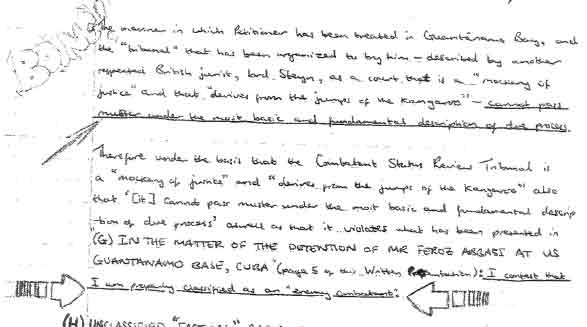 BOING!
the manner in which Petitioner has been treated in Guantánamo Bay, and
the "tribunal" that has been organized to try him – described by another
respected British jurist, Lord Steyn, as a court that is a "mockery of
justice" and that "derives from the jumps of the kangaroo" – cannot pass
muster under the most basic and fundamental description of due process.
Therefore under the basis that the Combatant Status Review Tribunal is
a "mockery of justice" and "derives from the jumps of the kangaroo" also
that '[it] cannot pass muster under the most basic and fundamental descrip
-tion of due process' aswell as that it violates what has been presented in
(G) IN THE MATTER OF THE DETENTION OF MR FEROZ ABBASI AT US
GUANTANAMO BASE, CUBA (page 5 of this Written): I contest that
I am properly classified as an "enemy combatant".
(H) UNCLASSIFIED